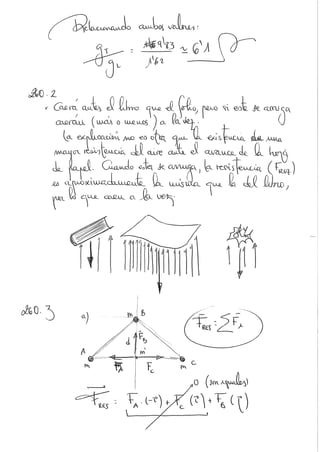 Relacionando ambos valores:
gT / gL = 9'83 / 1'62 ≃ 6'1
260.2
• Caerá antes el libro que el folio, pero si este se arruga
caerán (más o menos) a la vez.
La explicación no es otra que la existencia de una
mayor resistencia del aire ante el avance de la hoja
de papel. Cuando esta se arruga, la resistencia (FRES)
es aproximadamente la misma que la del libro,
por lo que caen a la vez.
260.3 a)
m B
FRES = ΣFi
d FB
A m' C
m FA FC m
0 (son iguales)
FRES = FA·(-i) + FC (i) + FB (j)